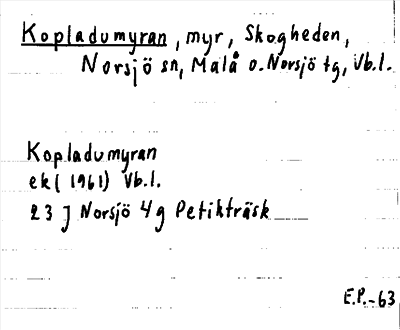 Kopladumyran, myr, Skogheden,
Norsjö sn, Malå o. Norsjö tg, Vb.l.
Kopladumyran
ek (1961) Vb.l.
23 J Norsjö 4g Petikträsk
E.P.-63